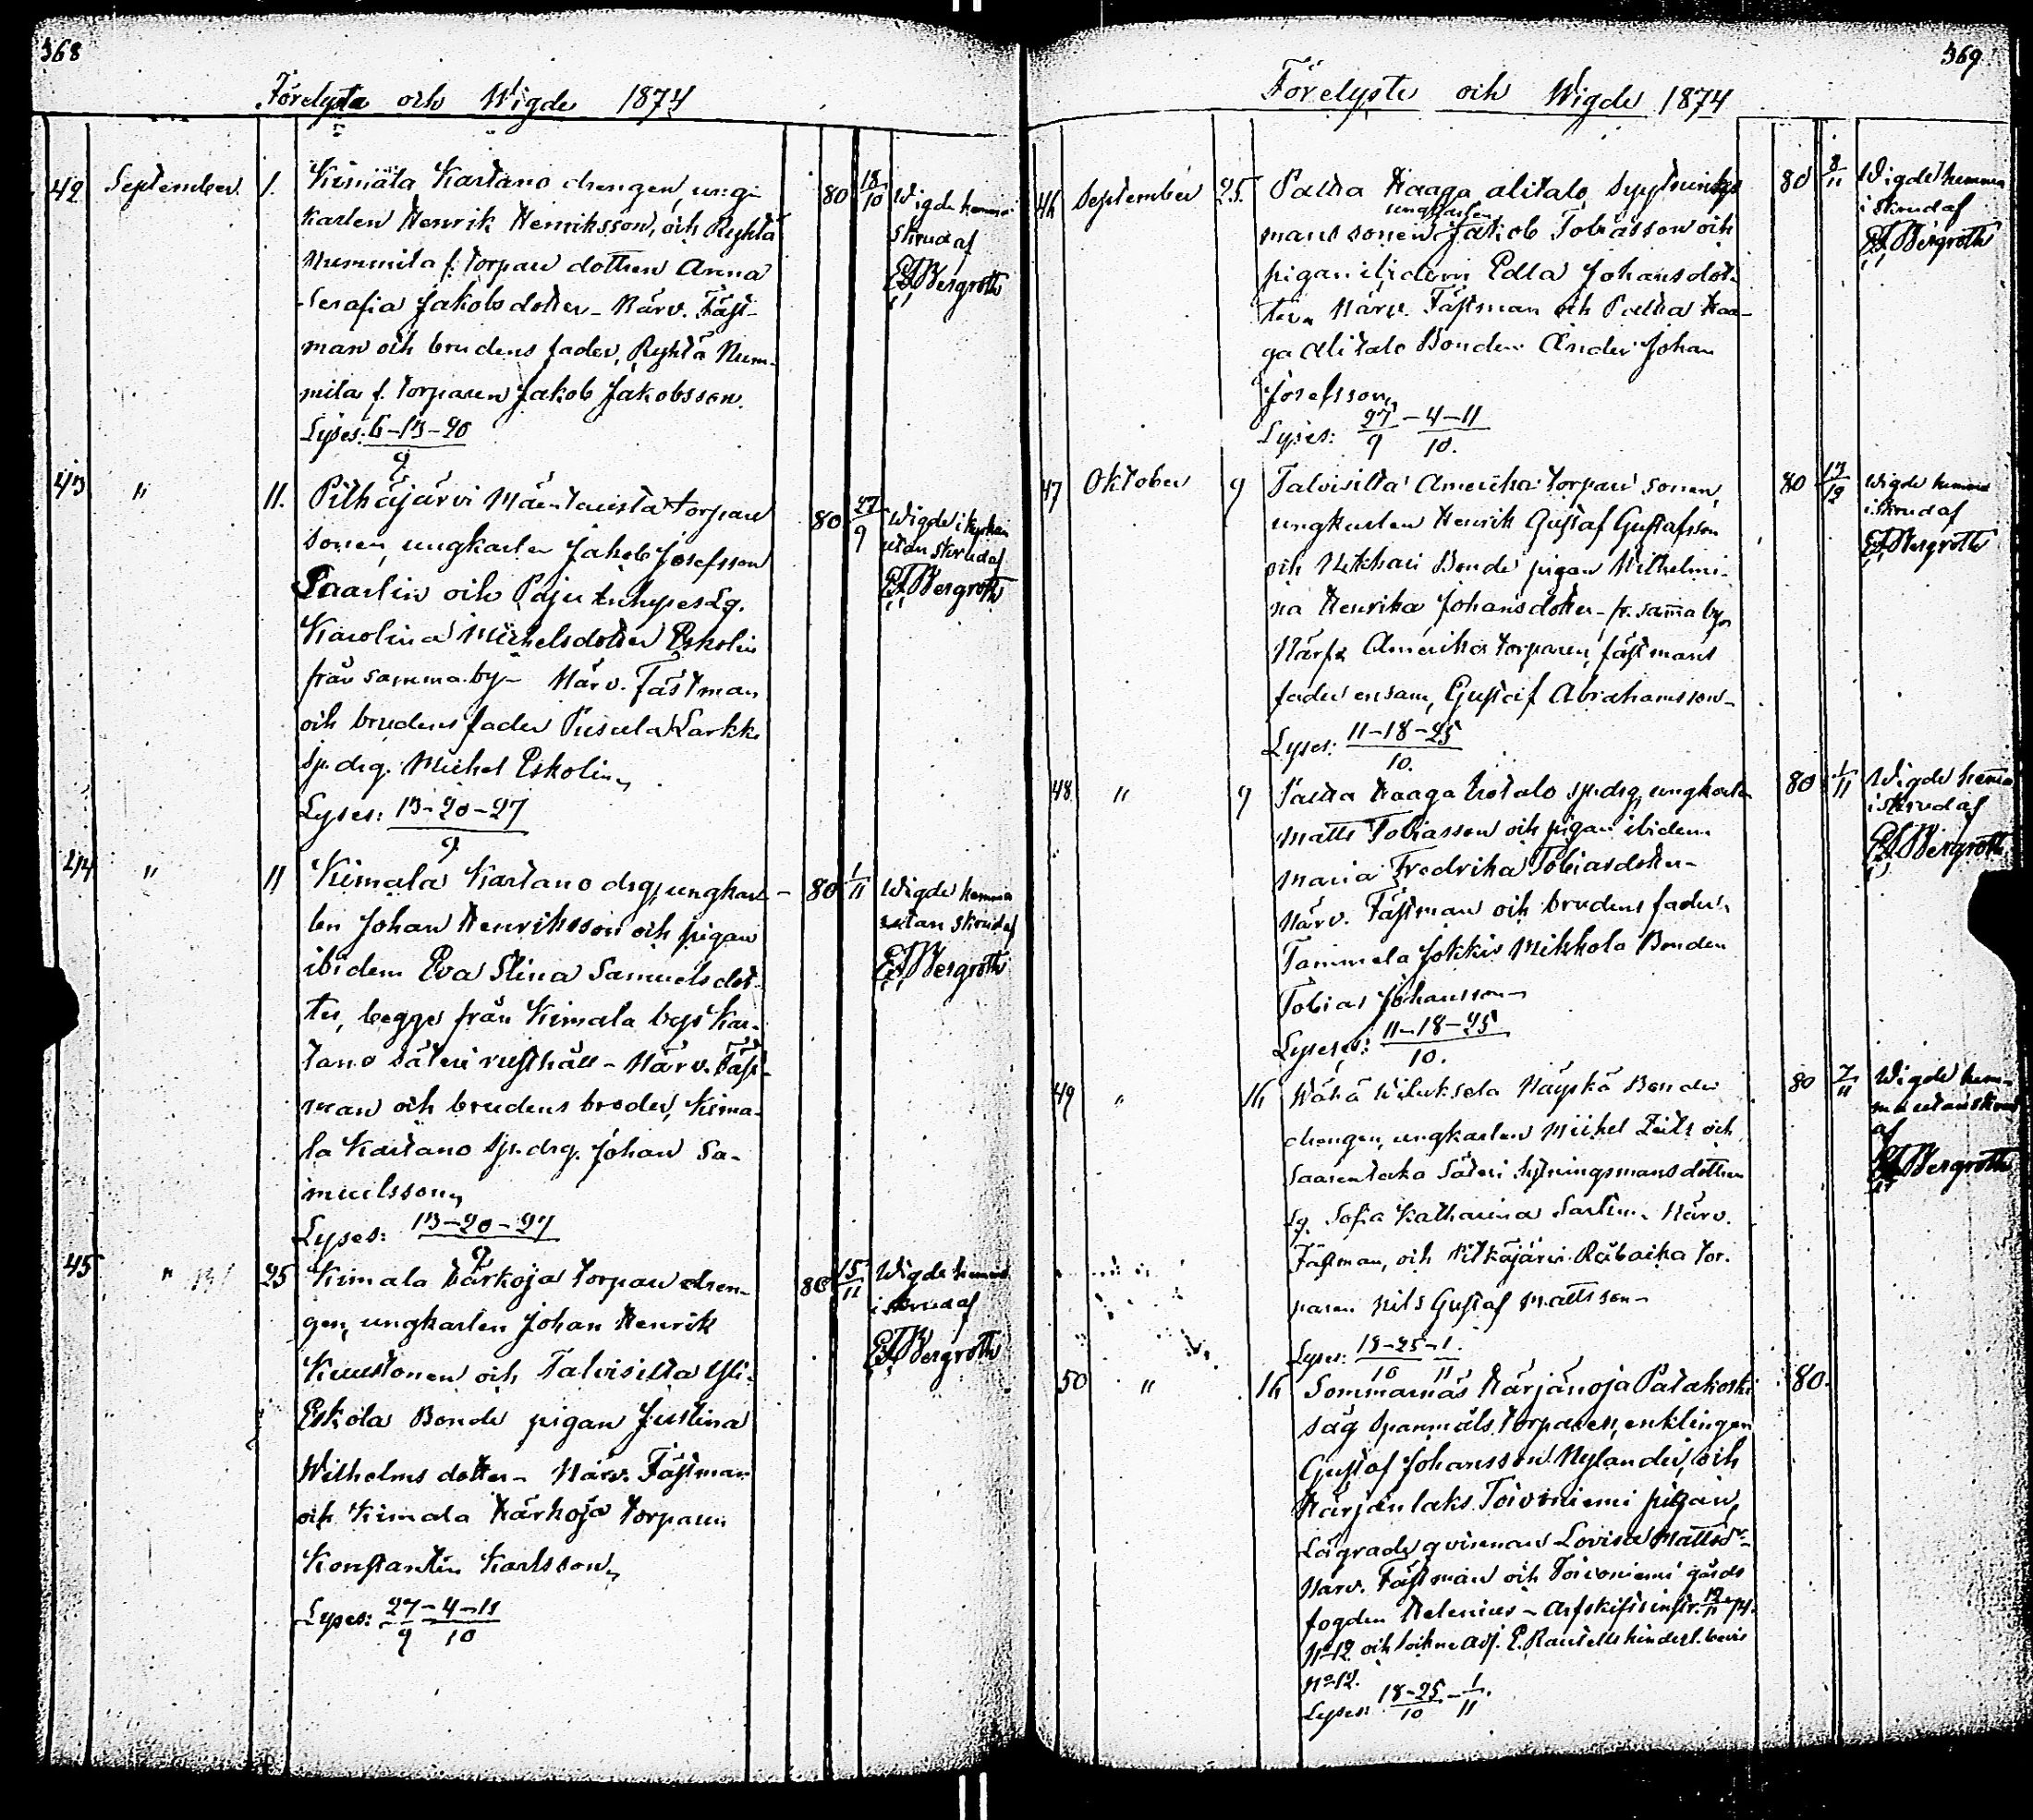 368
Förelysta och Wigde 1874
42 September 1. Kimala Kartano drengen, ung-
karlen Henrik Henriksson, och Ryhtä
Nummila f. torpare dottren Anna
Serafia Jakobsdotter – Närv. Fäst-
man och brudens fader, Ryhtä Num-
mila f. torparen Jakob Jakobsson.
Lyses: 6–13–20
9
80 18/10 Wigde hemma
i skrud af
E.F. Bergroth
43 " 11. Pitkäjärvi Mäentausta torpare
sonen, ungkarlen Jakob Josefsson
Saarlin och Paju
Karolina Michelsdotter Eskolin
från samma by – Närv. Fästman
och brudens fader Pusula Larkki
sp. drg. Michel Eskolin,
Lyses: 13–20–27
9
80 27/9 Wigde i kyrkan
utan skrud af
E.F. Bergroth
44 " 11 Kimala Kartano drg, ungkar-
len Johan Henriksson och pigan
ibidem Eva Stina Samuelsdot-
ter, begge från Kimala bys Kar-
tano Säteri rusthåll – Närv. Fäst-
man och brudens broder, Kima-
la Kartano sp. drg. Johan Sa-
muelsson,
Lyses: 13–20–27
9
80 1/11 Wigde hemma
utan skrud af
E.F. Bergroth
45 " 25 Kimala Härkoja torpare dren-
gen, ungkarlen Johan Henrik
Kuustonen och Talvisilta Yli-
Eskola Bonde pigan Justina
Wilhelms dotter – Närv. Fästman
och Kimala Härkoja torparen
Konstantin Karlsson,
Lyses: 27 – 4–11
9 10
80 15/11 Wigde hemma
i skrud af
E.F. Bergroth
369
Förelyste och Wigde 1874
46 September 25. Palta Haaga alitalo, Syytnings
ungkarlen
mans sonen Jakob Tobiasson och
pigan ibidem Edla Johansdot-
ter, Närv. Fästman och Palta Haa-
ga Alitalo Bonden Ander Johan
Josefsson,
Lyses: 27 – 4–11
9 10.
80 8/11 Wigde hemma
i skrud af
E.F. Bergroth
47 Oktober 9 Talvisilta Amerika torpare sonen,
ungkarlen Henrik Gustaf Gustafsson
och Uekkari Bonde pigan Wilhelmi-
na Henrika Johansdotter – fr. samma by,
Närv. Amerika torparen, fästmans
fader ensam, Gustaf Abrahamsson –
Lyses: 11–18–25
10.
80 13/12 Wigde hemma
i skrud af
E.F. Bergroth
48 " 9 Palta Haaga Isotalo sp. drg, ungkarlen
Matts Tobiasson och pigan ibidem
Maria Fredrika Tobiasdotter –
Närv. Fästman och brudens fader,
Tammela Jokkis Mikkola Bonden
Tobias Johansson –
Lyses: 11–18–25
10.
80 1/11 Wigde hemma
i skrud af
E.F. Bergroth
49 " 16 Wähä Wiluksela Näyskä Bonde
drengen, ungkarlen Michel Feits och
Saarentaka Säteri Sytningsmans dottren
Lg. Sofia Katharina Sarlin. Närv.
Fästman, och Pitkäjärvi Räbaika tor-
paren Nils Gustaf Mattsson –
Lyses: 18–25–1.
10 11
80 7/11 Wigde hem-
ma utan skrud
af
E.F. Bergroth
50 " 16 Sommarnäs Härjänoja Patakoski
såg Spanmåls torparen, enklingen
Gustaf Johansson Nylander, och
Härjänlaks Toivoniemi pigan,
Lägrade qvinnan Lovisa Mattsdr –
Närv. Fästman och Toivoniemi gårds
fogden Helenius – Arfskiftsinstr. 12/11 74.
No 12 och sockne adj. E. Rancells hinderl. bevis
No 12.
Lyses: 18–25 – 1.
10 11
80.